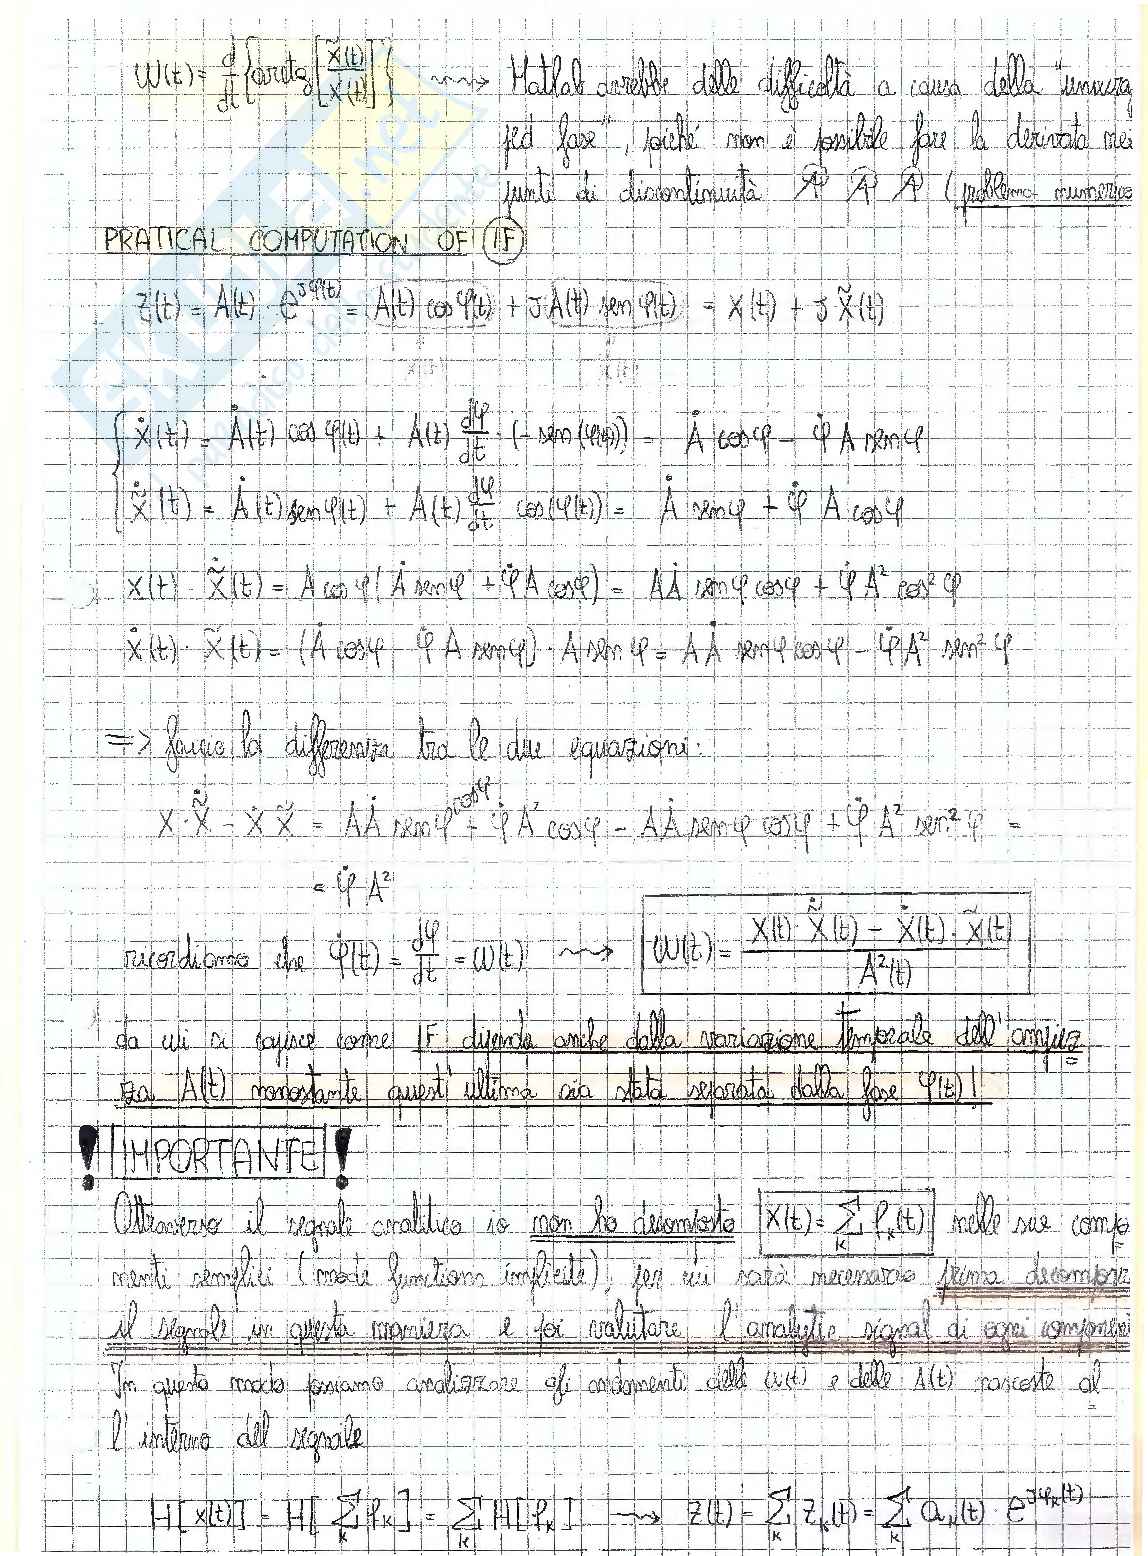 W(t) = d/dt {arctg [x̃(t)/x(t)]} ⟿ Matlab avrebbe delle difficoltà a causa della "unwrap
ped fase", poiché non è possibile fare la derivata nei
punti di discontinuità (problema numerico
PRATICAL COMPUTATION OF IF
Z(t) = A(t) · e^{jφ(t)} = A(t) cosφ(t) + jA(t) senφ(t) = x(t) + j x̃(t)
x(t) x̃(t)
ẋ(t) = Ȧ(t) cosφ(t) + A(t) dφ/dt · (-sen(φ(t))) = Ȧ cosφ - φ̇ A senφ
x̃̇(t) = Ȧ(t) senφ(t) + A(t) dφ/dt cos(φ(t)) = Ȧ senφ + φ̇ A cosφ
x(t) · x̃̇(t) = A cosφ (Ȧ senφ + φ̇ A cosφ) = AȦ senφ cosφ + φ̇ A² cos²φ
ẋ(t) · x̃(t) = (Ȧ cosφ - φ̇ A senφ) · A senφ = AȦ senφ cosφ - φ̇ A² sen²φ
=> faccio la differenza tra le due equazioni:
x · x̃̇ - ẋ x̃ = AȦ senφ cosφ + φ̇ A² cosφ - AȦ senφ cosφ + φ̇ A² sen²φ =
= φ̇ A²
ricordiamo che φ̇(t) = dφ/dt = W(t) ⟿ W(t) = (x(t) · x̃̇(t) - ẋ(t) · x̃(t)) / A²(t)
da cui si capisce come IF dipenda anche dalla variazione temporale dell'ampiez
za A(t) nonostante quest'ultima sia stata separata dalla fase φ(t)!
! IMPORTANTE !
Attraverso il segnale analitico io non ho decomposto x(t) = Σ_k f_k(t) nelle sue compo
nenti semplici (mode functions implicite), per cui sarà necessario prima decomporre
il segnale in questa maniera e poi valutare l'analytic signal di ogni componente
In questo modo possiamo analizzare gli andamenti delle w(t) e delle A(t) nascoste al
l'interno del segnale
H[x(t)] = H[Σ_k f_k] = Σ_k H[f_k] ⟿ Z(t) = Σ_k Z_k(t) = Σ_k a_k(t) · e^{jφ_k(t)}